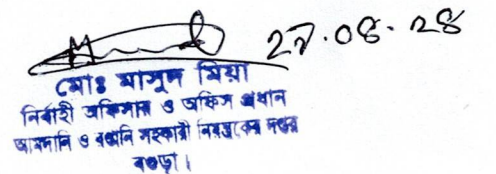 ২৭.০৪.২৪
মোঃ মাসুদ মিয়া
নির্বাহী অফিসার ও অফিস প্রধান
আমদানি ও রপ্তানি সহকারী নিয়ন্ত্রকের দপ্তর
বগুড়া।